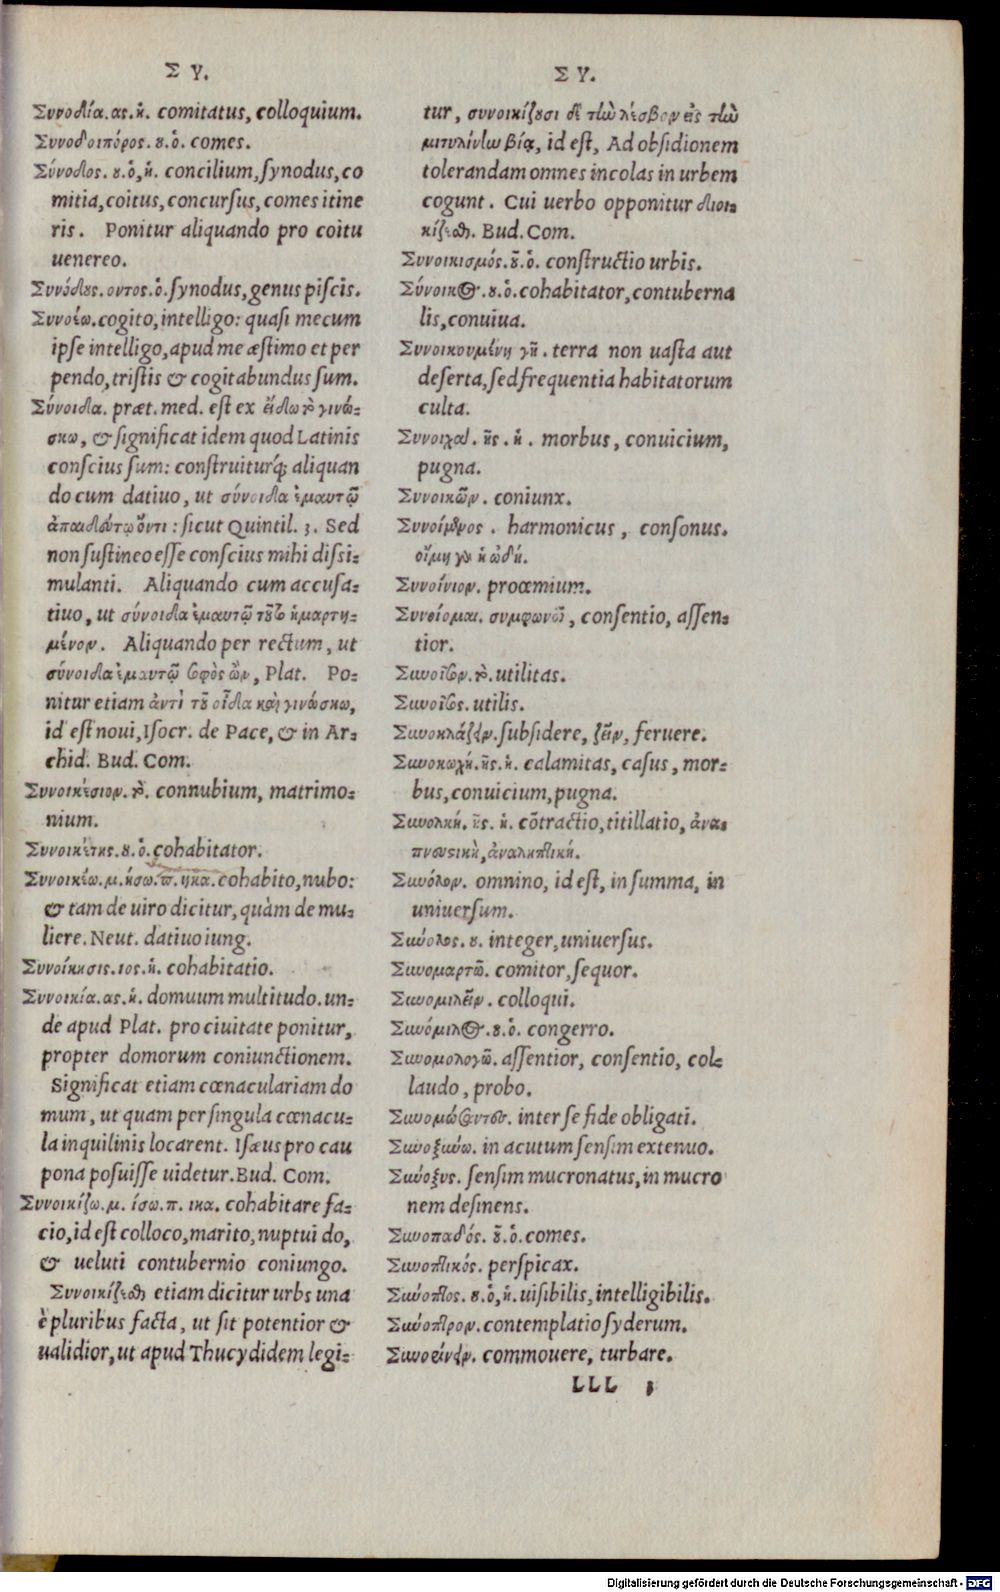 Σ Υ.
Συνοδία.ας.ἡ. comitatus, colloquium.
Συνοδοιπόρος.ου.ὁ. comes.
Σύνοδος.ου.ὁ,ἡ. concilium,ſynodus,co
mitia,coitus,concurſus,comes itine
ris. Ponitur aliquando pro coitu
uenereo.
Συνόδους.οντος.ὁ.ſynodus,genus piſcis.
Συνοέω.cogito,intelligo: quaſi mecum
ipſe intelligo,apud me æſtimo et per
pendo,triſtis & cogitabundus ſum.
Σύνοιδα. præt. med. eſt ex εἴδω τὸ γινώ-
σκω, & ſignificat idem quod Latinis
conſcius ſum: conſtruiturq́; aliquan
do cum datiuo, ut σύνοιδα ἐμαυτῷ
ἀπαιδεύτῳ ὄντι: ſicut Quintil. 3. Sed
non ſuſtineo eſſe conſcius mihi diſsi-
mulanti. Aliquando cum accuſa-
tiuo, ut σύνοιδα ἐμαυτῷ τοῦτο ἡμαρτη-
μένον. Aliquando per rectum, ut
σύνοιδα ἐμαυτῷ σοφὸς ὢν, Plat. Po-
nitur etiam ἀντὶ τοῦ οἶδα καὶ γινώσκω,
id eſt noui,Iſocr. de Pace, & in Ar-
chid. Bud. Com.
Συνοικέσιον.τὸ. connubium, matrimo-
nium.
Συνοικέτης.ου.ὁ.cohabitator.
Συνοικέω.μ.ήσω.π.ηκα.cohabito,nubo:
& tam de uiro dicitur,quàm de mu-
liere.Neut. datiuo iung.
Συνοίκησις.ιος.ἡ. cohabitatio.
Συνοικία.ας.ἡ. domuum multitudo.un-
de apud Plat. pro ciuitate ponitur,
propter domorum coniunctionem.
Significat etiam cœnaculariam do
mum, ut quam per ſingula cœnacu-
la inquilinis locarent. Iſæus pro cau
pona poſuiſſe uidetur.Bud. Com.
Συνοικίζω.μ. ίσω.π. ικα. cohabitare fa-
cio,id eſt colloco,marito,nuptui do,
& ueluti contubernio coniungo.
Συνοικίζεσθαι etiam dicitur urbs una
è pluribus facta, ut ſit potentior &
ualidior,ut apud Thucydidem legi-
Σ Υ.
tur, συνοικίζουσι δὲ τὴν λέσβον εἰς τὴν
μιτυλήνην βίᾳ, id eſt, Ad obſidionem
tolerandam omnes incolas in urbem
cogunt. Cui uerbo opponitur διοι-
κίζεσθαι. Bud. Com.
Συνοικισμός.οῦ.ὁ. conſtructio urbis.
Σύνοικος.ου.ὁ.cohabitator,contuberna
lis,conuiua.
Συνοικουμένη γῆ. terra non uaſta aut
deſerta,ſed frequentia habitatorum
culta.
Συνοιχαὶ. ῆς. ἡ. morbus, conuicium,
pugna.
Συνοικῶν. coniunx.
Συνοίμιος. harmonicus, conſonus.
οἴμη γὰρ ἡ ᾠδή.
Συνοίνιον. proœmium.
Συνοίομαι. συμφωνῶ, conſentio, aſſen-
tior.
Συνοῖσον.τὸ. utilitas.
Συνοῖσος. utilis.
Συνοκλάζειν.ſubſidere, ζεῖν, feruere.
Συνοκωχή.ῆς.ἡ. calamitas, caſus, mor-
bus,conuicium,pugna.
Συνολκή. ῆς. ἡ. cõtractio,titillatio, ἀνα-
πνευστικὴ,ἀναληπτική.
Συνόλον. omnino, id eſt, in ſumma, in
uniuerſum.
Σύνολος. ου. integer,uniuerſus.
Συνομαρτῶ. comitor,ſequor.
Συνομιλεῖν. colloqui.
Συνόμιλος.ου.ὁ. congerro.
Συνομολογῶ. aſſentior, conſentio, col-
laudo, probo.
Συνομώσαντες. inter ſe fide obligati.
Συνοξύνω. in acutum ſenſim extenuo.
Σύνοξυς. ſenſim mucronatus,in mucro
nem deſinens.
Συνοπαδός. οῦ.ὁ.comes.
Συνοπτικός. perſpicax.
Σύνοπτος. ου.ὁ,ἡ.uiſibilis,intelligibilis.
Σύνοπτρον.contemplatio ſyderum.
Συνορίνειν. commouere, turbare.
LLL 3
Digitalisierung gefördert durch die Deutsche Forschungsgemeinschaft - DFG